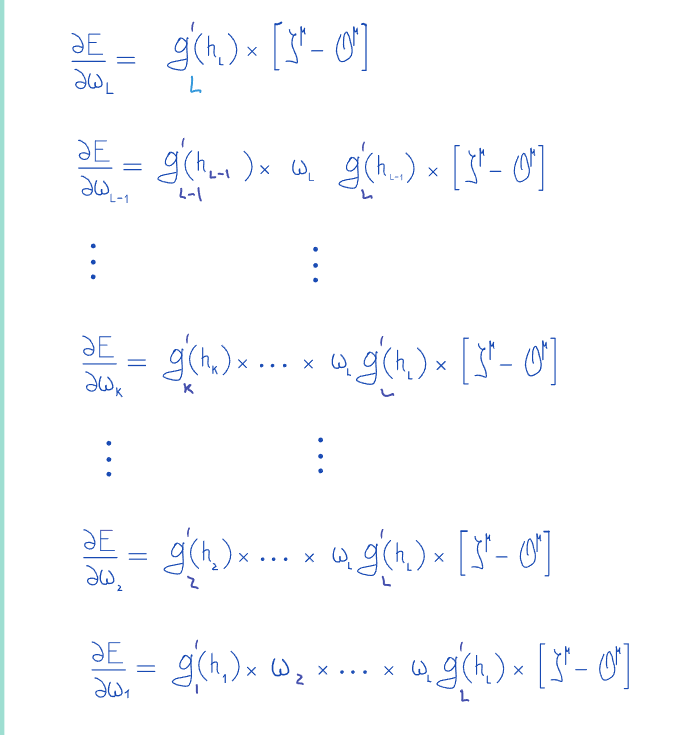 ∂E/∂ω_L = g'_L(h_L) × [ζ^μ − O^μ]
∂E/∂ω_{L-1} = g'_{L-1}(h_{L-1}) × ω_L g'_L(h_{L-1}) × [ζ^μ − O^μ]
⋮ ⋮
∂E/∂ω_K = g'_K(h_K) × ... × ω_L g'_L(h_L) × [ζ^μ − O^μ]
⋮ ⋮
∂E/∂ω_2 = g'_2(h_2) × ... × ω_L g'_L(h_L) × [ζ^μ − O^μ]
∂E/∂ω_1 = g'_1(h_1) × ω_2 × ... × ω_L g'_L(h_L) × [ζ^μ − O^μ]